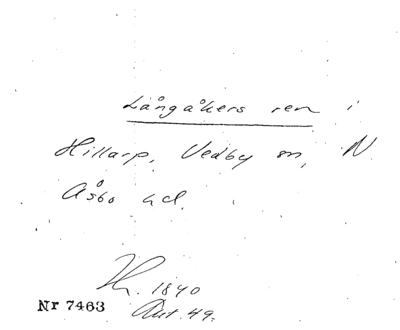 Långåkers ren i
Hillarp, Vedby sn, N.
Åsbo hd.
1840
Nr 7463
Aut. 49.